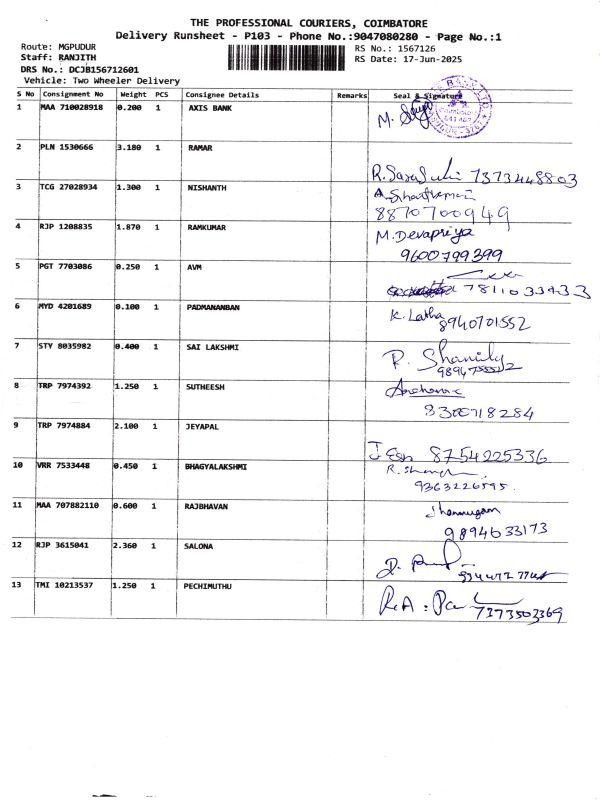 THE PROFESSIONAL COURIERS, COIMBATORE
Delivery Runsheet - P103 - Phone No.:9047080280 - Page No.:1
Route: MGPUDUR
RS No.: 1567126
Staff: RANJITH
RS Date: 17-Jun-2025
DRS No.: DCJB156712601
Vehicle: Two Wheeler Delivery
S No Consignment No Weight PCS Consignee Details Remarks Seal & Signature
1 MAA 710028918 0.200 1 AXIS BANK M.
2 PLN 1530666 3.180 1 RAMAR
7373448803
3 TCG 27028934 1.300 1 NISHANTH
8870700949
4 RJP 1208835 1.870 1 RAMKUMAR M. Devapriya
9600799399
5 PGT 7703086 0.250 1 AVM
7811033433
6 MYD 4201689 0.100 1 PADMANANBAN K. Latha
8940701552
7 STY 8035982 0.400 1 SAI LAKSHMI R.
8 TRP 7974392 1.250 1 SUTHEESH
8300718284
9 TRP 7974884 2.100 1 JEYAPAL
8754225336
10 VRR 7533448 0.450 1 BHAGYALAKSHMI
9363226595
11 MAA 707882110 0.600 1 RAJBHAVAN
9894633173
12 RJP 3615041 2.360 1 SALONA
13 TMI 10213537 1.250 1 PECHIMUTHU
7373503369